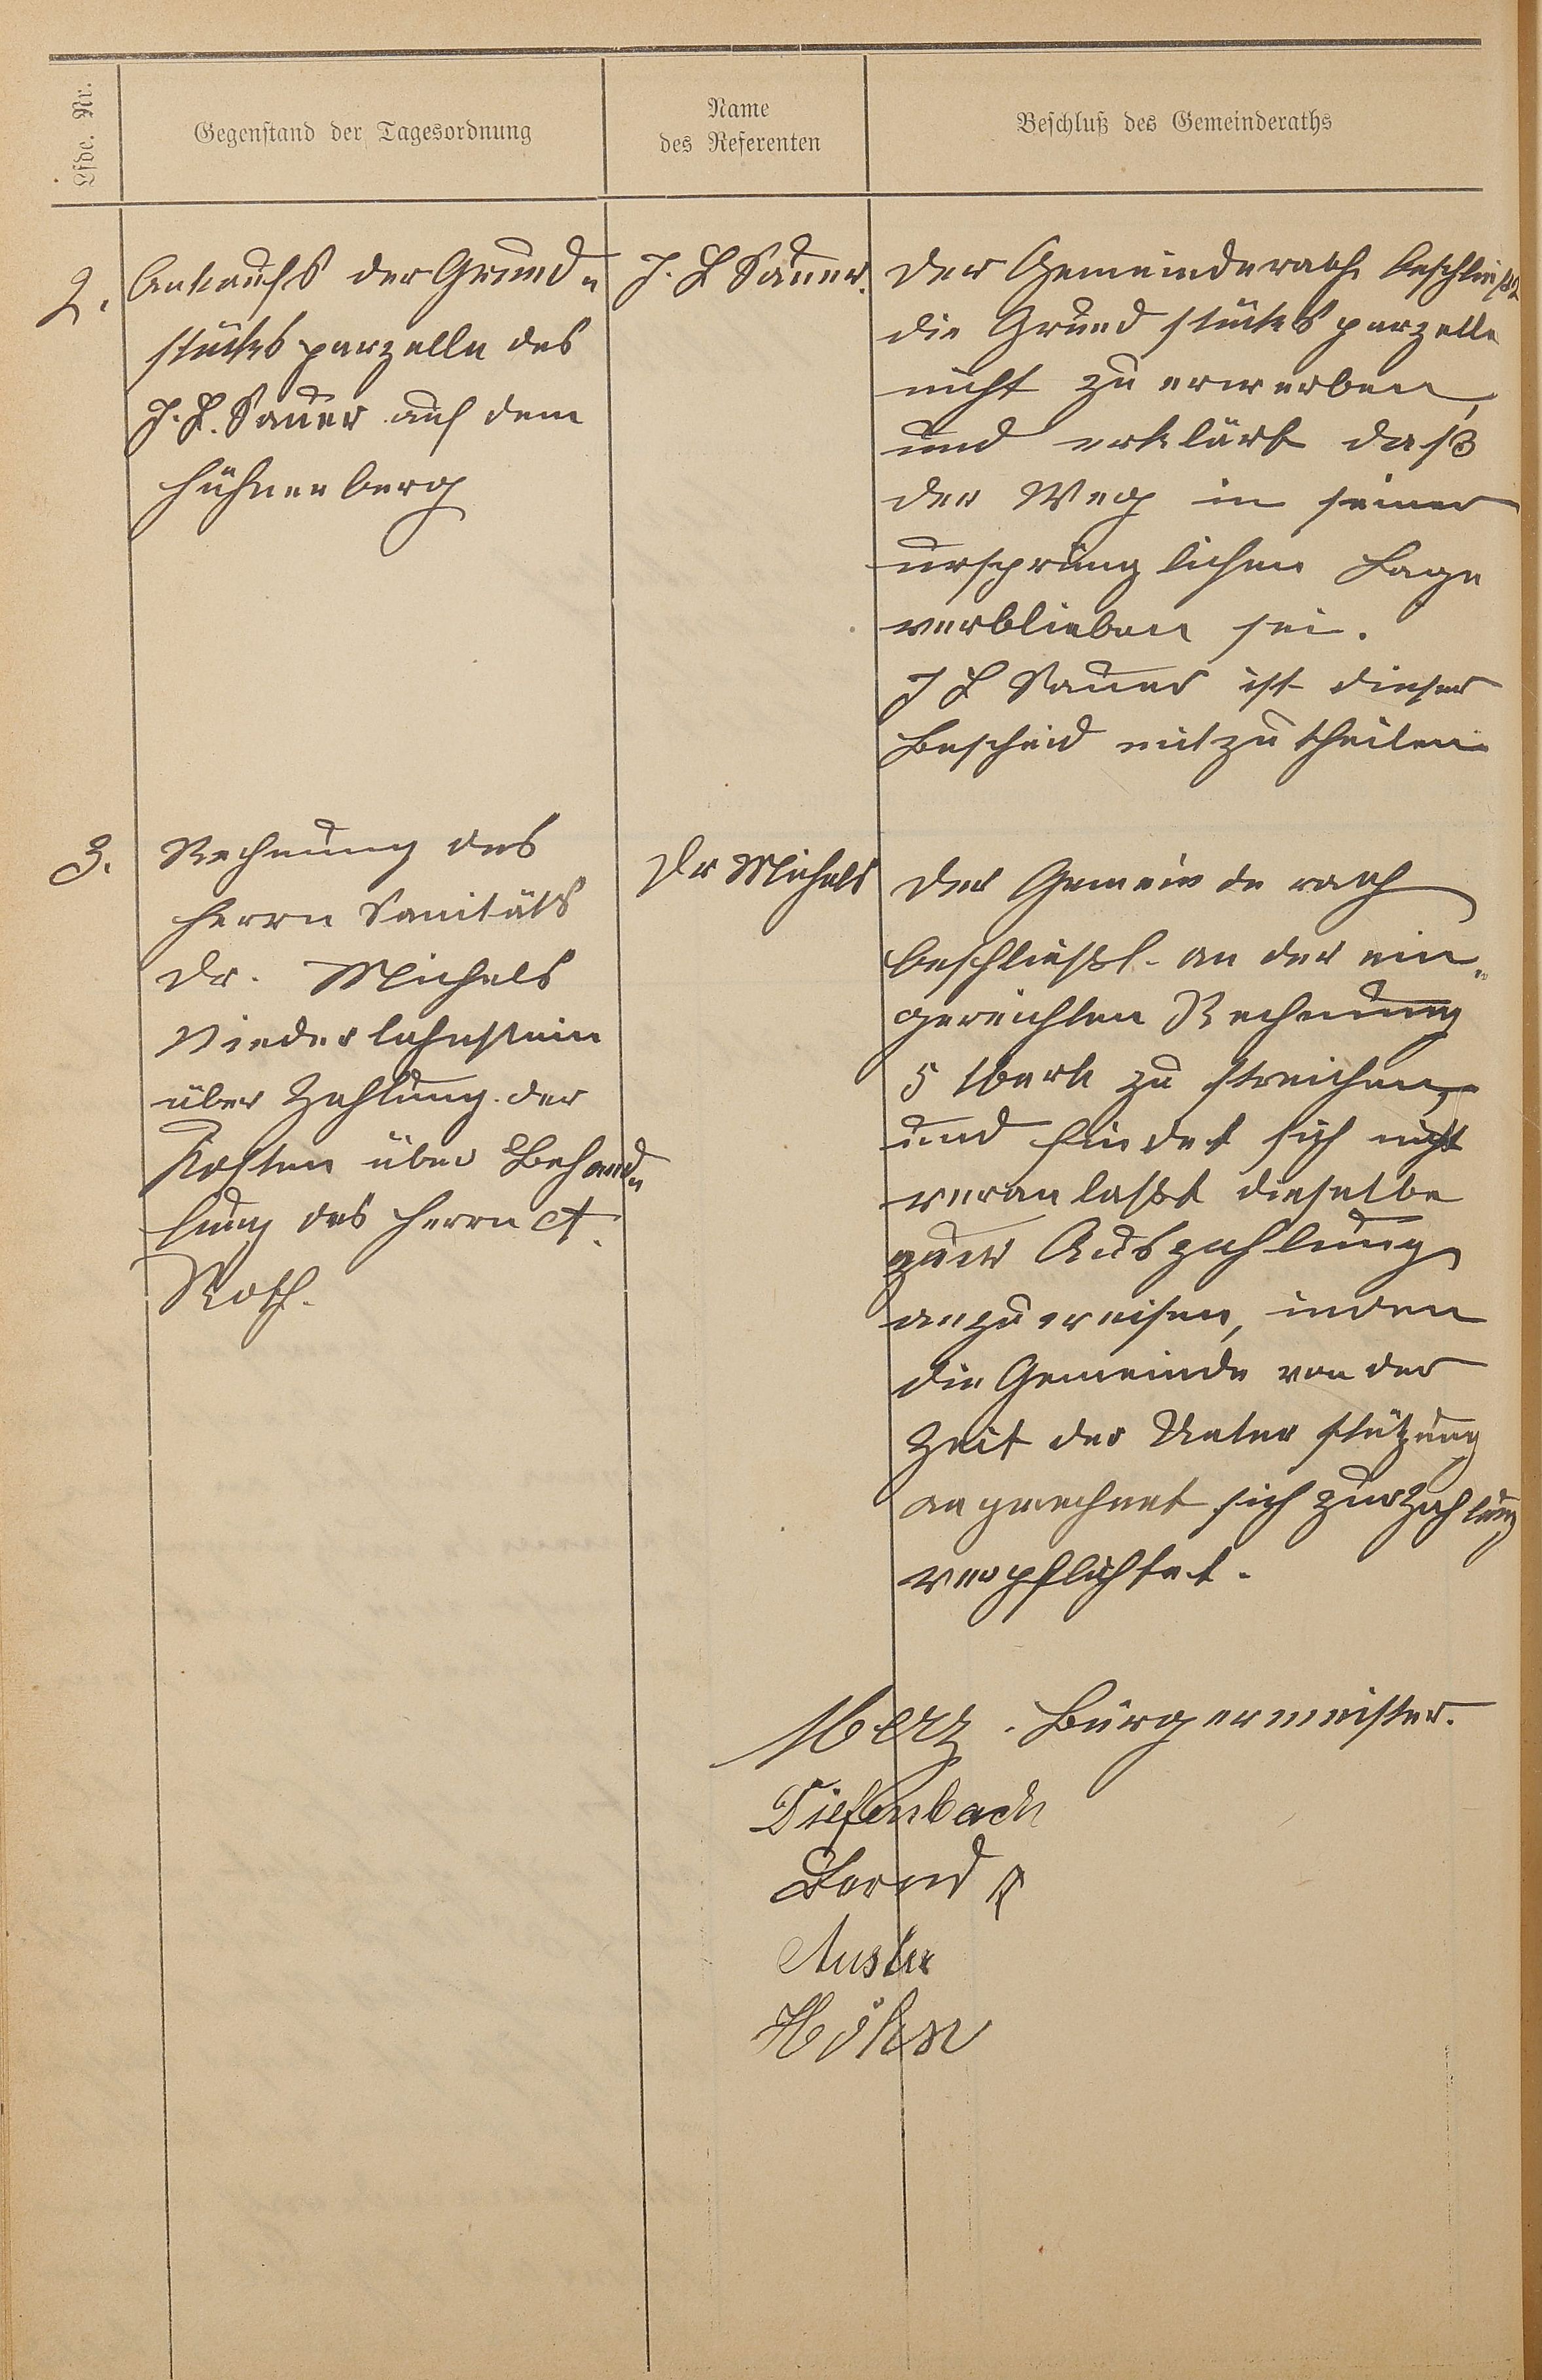 Lfde. Nr.
Gegenstand der Tagesordnung
Name
des Referenten
Beschluß des Gemeinderaths
2.
Ankaufs der Grund-
stücksparzelle des
J. P. Sauer auf dem
Hühnerberg
J. P Sauer.
Der Gemeinderath beschließt
die Grundstücksparzelle
nicht zu erwerben,
und erklärt daß
der Weg in seiner
ursprünglichen Lage
verblieben sei.
J P Sauer ist dieser
Bescheid mitzutheilen
3.
Rechnung des
Herrn Sanitäts
Dr. Michels
Niederlahnstein
über Zahlung der
Kosten über Behand-
lung des Herrn A.
Roth.
Dr Michels
Der Gemeinderath
beschließt an der ein-
gereichten Rechnung
5 Mark zu streichen,
und findet sich nicht
veranlaßt dieselbe
zur Auszahlung
anzuweisen, indem
die Gemeinde von der
Zeit der Unterstützung
angerechnet sich zur Zahlung
verpflichtet.
Merz. Bürgermeister.
Diefenbach
Bernd
Höhn